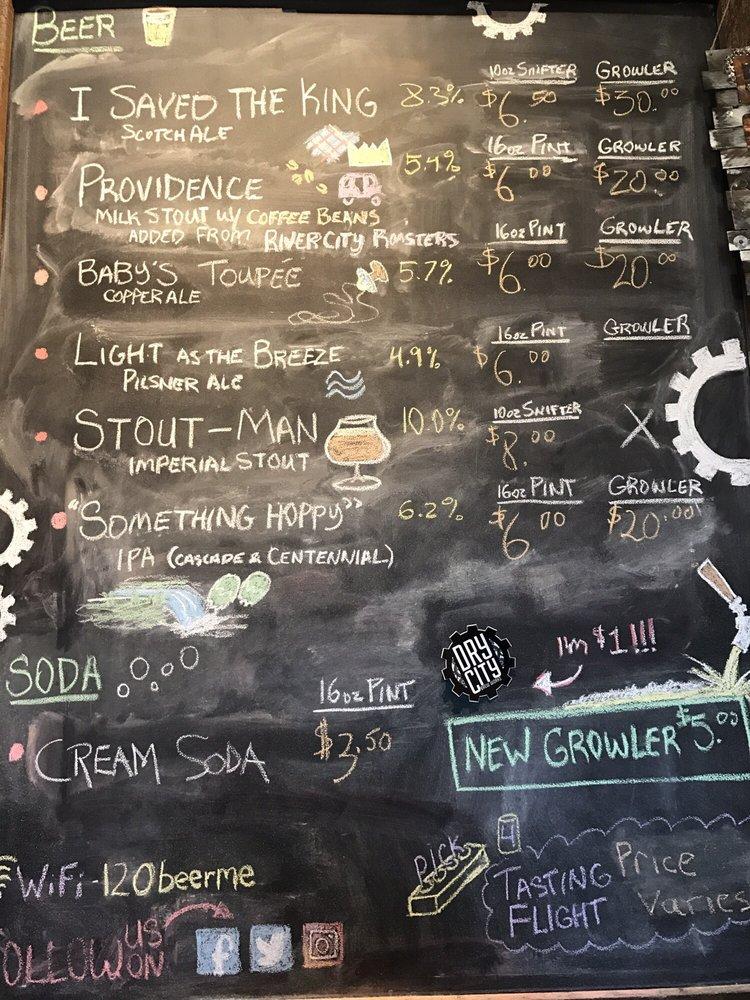 BEER
10oz SNIFTER GROWLER
I SAVED THE KING 8.3% $6.50 $30.00
SCOTCH ALE
16oz PINT GROWLER
PROVIDENCE 5.4% $6.00 $20.00
MILK STOUT W/ COFFEE BEANS
ADDED FROM RIVER CITY ROASTERS
16oz PINT GROWLER
BABY'S TOUPÉE 5.7% $6.00 $20.00
COPPER ALE
16oz PINT GROWLER
LIGHT AS THE BREEZE 4.9% $6.00
PILSNER ALE
10oz SNIFTER
STOUT-MAN 10.0% $8.00 X
IMPERIAL STOUT
16oz PINT GROWLER
"SOMETHING HOPPY" 6.2% $6.00 $20.00
IPA (CASCADE & CENTENNIAL)
DRY CITY
I'm $1!!!
SODA
16oz PINT
CREAM SODA $3.50
NEW GROWLER $5.00
PICK 4
TASTING FLIGHT
Price Varies
WiFi - 120beerme
FOLLOW US ON